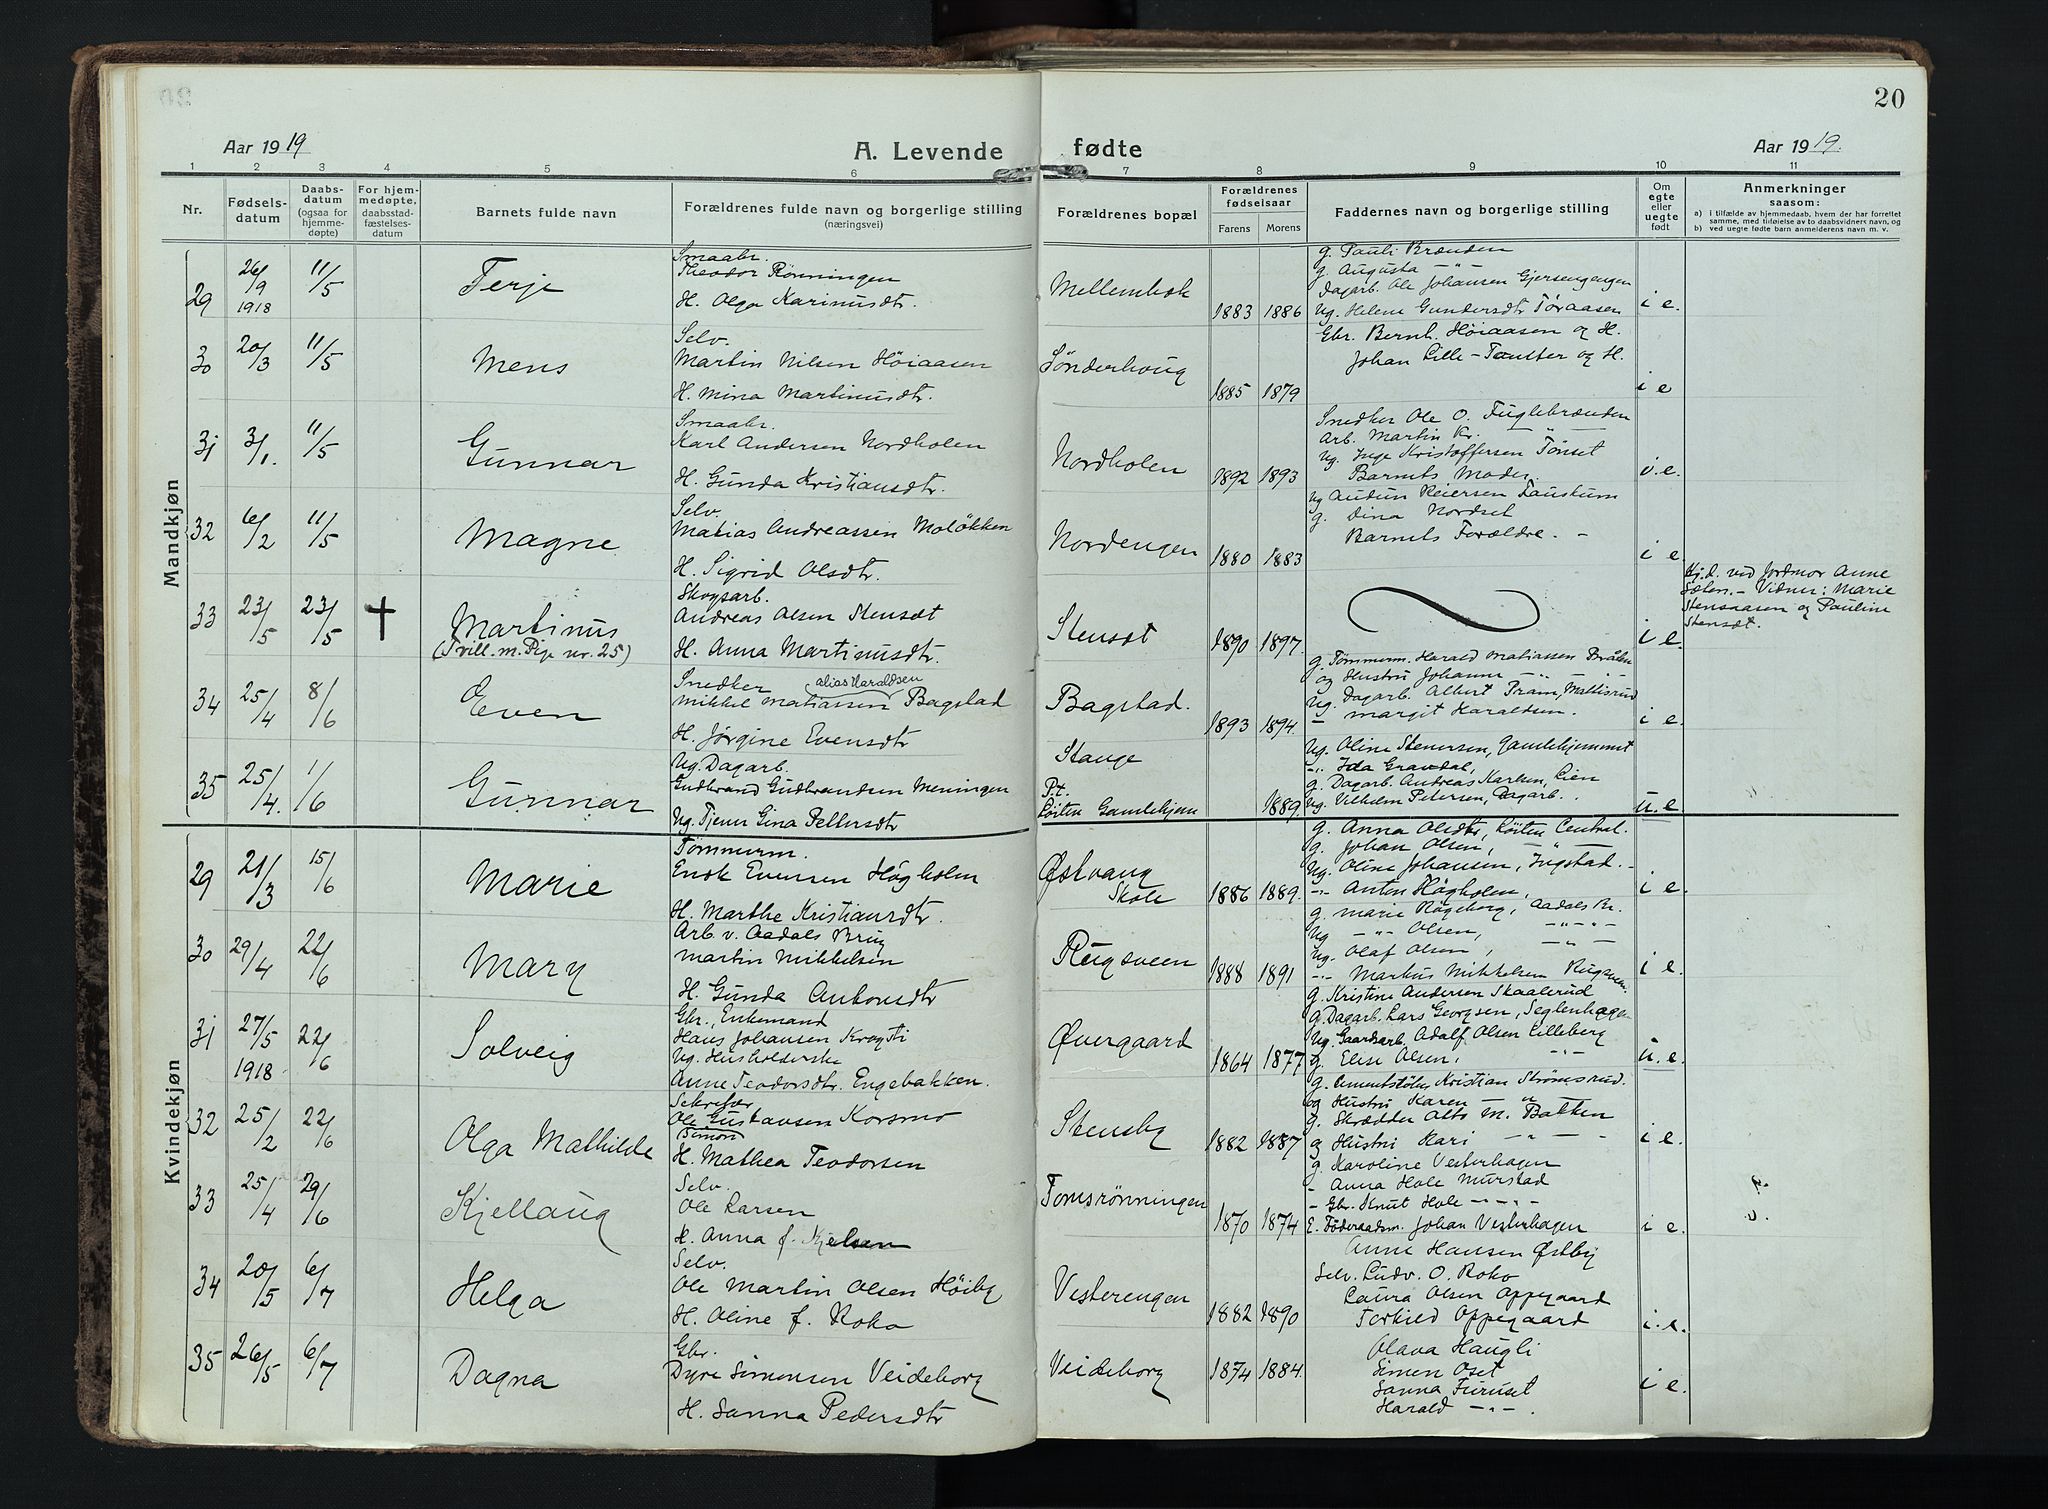 20
Aar 1919
A. Levende fødte
Aar 1919.
1 2 3 4 5 6 7 8 9 10 11
Nr.
Fødsels-datum
Daabs-datum (ogsaa for hjemme-døpte)
For hjem-medøpte, daabsstad-fæstelses-datum
Barnets fulde navn
Forældrenes fulde navn og borgerlige stilling (næringsvei)
Forældrenes bopæl
Forældrenes fødselsaar
Farens Morens
Faddernes navn og borgerlige stilling
Om egte eller uegte født
Anmerkninger saasom:
a) i tilfælde av hjemmedaab, hvem der har forrettet samme, med tilføielse av to daabsvidners navn, og
b) ved uegte fødte barn anmelderens navn m. v.
Mandkjøn
29 26/9 1918 11/5 Terje
Smaabr.
Theodor Rønningen
H. Olga Karinusdtr.
Mellembek 1883 1886
g. Pauli Brænden
g. Augusta -"-
Dagarb. Ole Johansen Gjersengengen
Ug. Helene Gundersdtr Tøraasen
i e.
30 20/3 11/5 Mens
Selv.
Martin Nilsen Høiaasen
H. Mina Martinusdtr.
Sønderhoug 1885 1879
Gbr. Bernh. Høiaasen og H.
Johan Lille-Tønster og H.
i e
31 3/1. 11/5 Gunnar
Smaabr.
Karl Andersen Nordholen
H. Gunda Kristiansdtr.
Nordholen 1892 1893
Snedker Ole O. Fuglebrænden
Arb. Martin Kr. -"-
Ug. Inge Kristoffersen Tønset
Barnets Moder.
i. e.
32 6/2 11/5 Magne
Selv.
Matias Andreassen Moløkken
H. Sigrid Olsdtr.
Nordengen 1880 1883
Ug Audun Reiersen Fauskum
g. Dina Nordset
Barnets Forældre. -
i e.
33 23/5 23/5 † Martinus
(Tvill. m. Pige nr. 25)
Skogsarb.
Andreas Olsen Stensæt
H. Anna Martinusdtr.
Stensæt 1890 1897.
i e.
Hj.d. ved Jordmor Anne
Sæten. - Vidner: Marie
Stensaasen og Pauline
Stensæt.
34 25/4 8/6 Even
Snedker alias Haraldsen
Mikkel Matiassen Bagstad
H. Jørgine Evensdtr
Bagstad. 1893 1894.
g. Tømmerm. Harald Matiassen Bråten
og Hustru Johanne -"-
Ug. Dagarb. Albert Fram, Mattisrud
- Margit Haraldsen.
i e.
35 25/4. 1/6 Gunnar
Ug. Dagarb.
Gudbrand Gudbrandsen Meningen
Ug. Tjener Gina Pettersdtr
Stange
P.t.
Løiten Gamlehjem 1889.
Ug. Oline Stenersen, Gamlehjemmet
-"- Ida Grandal,
g. Dagarb. Andreas Karlsen, Lien
Ug. Vilhelm Petersen, Dagarb.
u. e
Kvindekjøn
29 21/3 15/6 Marie
Tømmerm.
Enok Evensen Høgholm
H. Marthe Kristiansdtr.
Østvang
Skole 1886 1889.
g. Anna Olsdtr, Løiten Central.
g. Johan Olsen, -"-
Ug. Oline Johansen, Ingstad.
-"- Anton Høgholen,
i e.
30 29/4 22/6 Mary
Arb. v. Aadals Brug
Martin Mikkelsen
H. Gunda Antonsdtr
Rugsveen 1888 1891
g. Marie Røgeberg, Aadals Br.
Ug -"- Olsen, -"-"-
Ug. Olaf Olsen, -"-
-"- Markus Mikkelsen Rugsveen.
i e.
31 27/5 1918 22/6 Solveig
Gbr., Enkemand
Hans Johansen Kragsti
Ug. Husholderske
Anne Teodorsdtr. Engebakken.
Øvergaard 1864 1877
g. Kristine Andersen Skaalerud
g. Dagarb. Lars Georgsen, Seglenhagen
Ug. Gaardsarb. Adolf Olsen Lilleberg
g. Elise Olsen, -"-
u. e.
32 25/2 22/6 Olga Mathilde
Ole Gustavsen Korsmo
Simon
H. Mathea Teodorsen
Stensby 1882 1887
g. Cementstøber Kristian Strømsrud.
og Hustru Karen -"-
g. Skrædder Otto M. Bakken
og Hustru Kari -"-
i e.
33 25/4 29/6 Kjellaug
Selv.
Ole Larsen
H. Anna f. Kjelsen
Tomsrønningen 1870 1874
g. Karoline Vesterhagen
- Anna Hole Murstad
- Gbr. Knut Hole -"-
E. Føderaadsm. Johan Vesterhagen
i e.
34 20/5 6/7 Helga
Selv.
Ole Martin Olsen Høiby
H. Oline f. Roko
Vesterengen 1882 1890
Anne Hansen Østby
Selv. Ludv. O. Roko
Laura Olsen Oppegaard
Torkild Oppegaard
i. e.
35 26/5 6/7 Dagna
Gbr.
Dyre Simensen Veideborg
H. Sanna Pedersdtr
Veideborg 1874 1884.
Olava Haugli
Simen Oset
Sanna Furuset
Harald -"-.
i e.